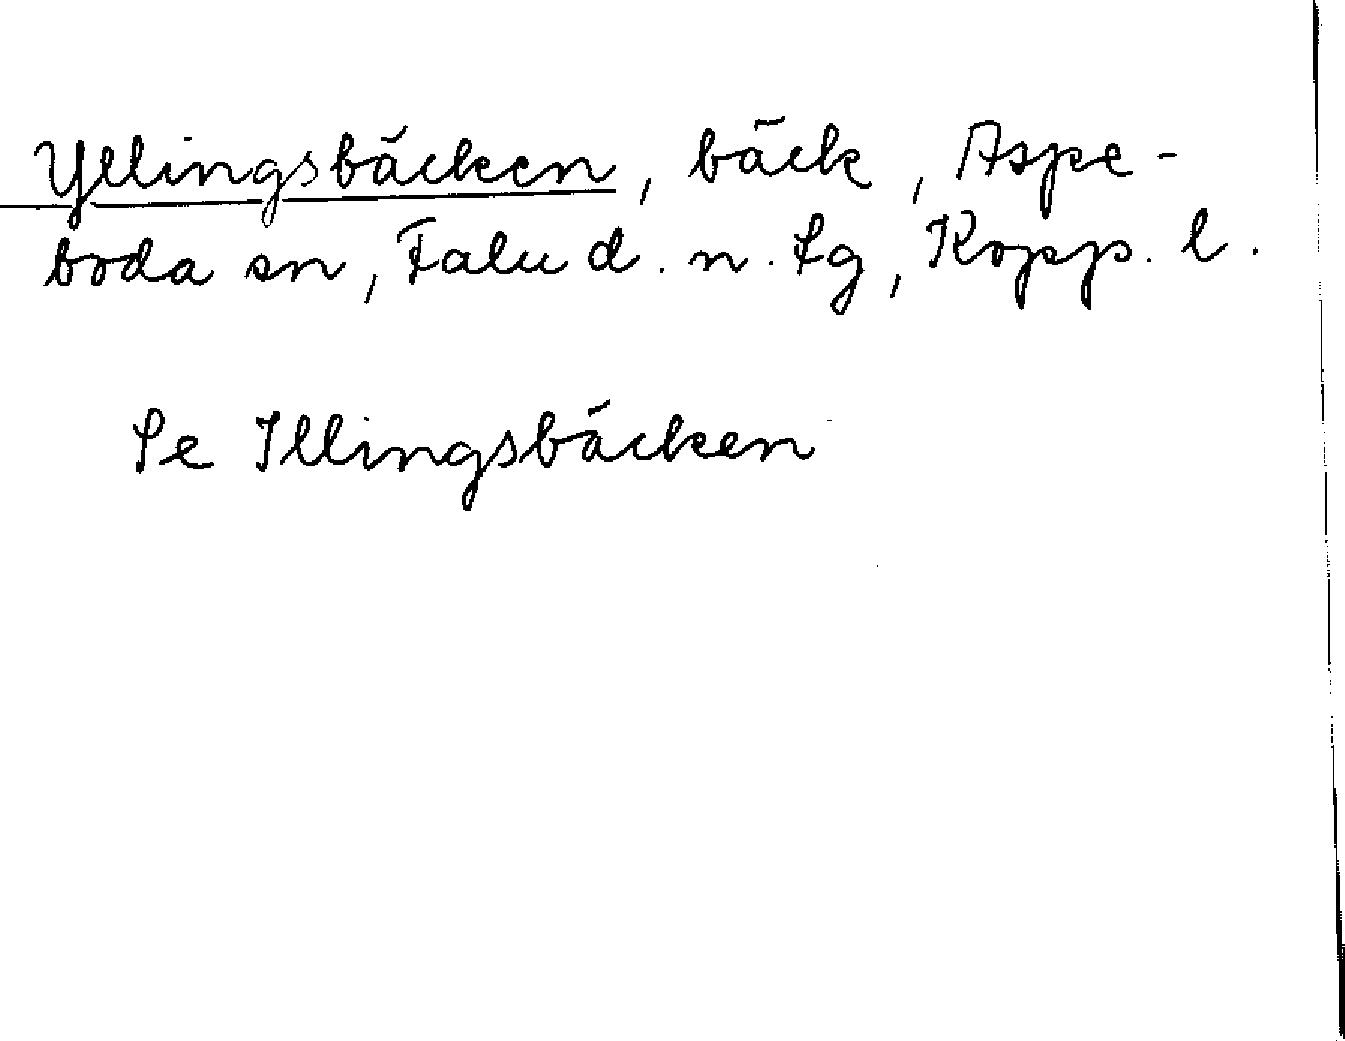 Yllingsbäcken, bäck, Aspe-
boda sn, Falu d. n. tg, Kopp. l.
Se Illingsbäcken